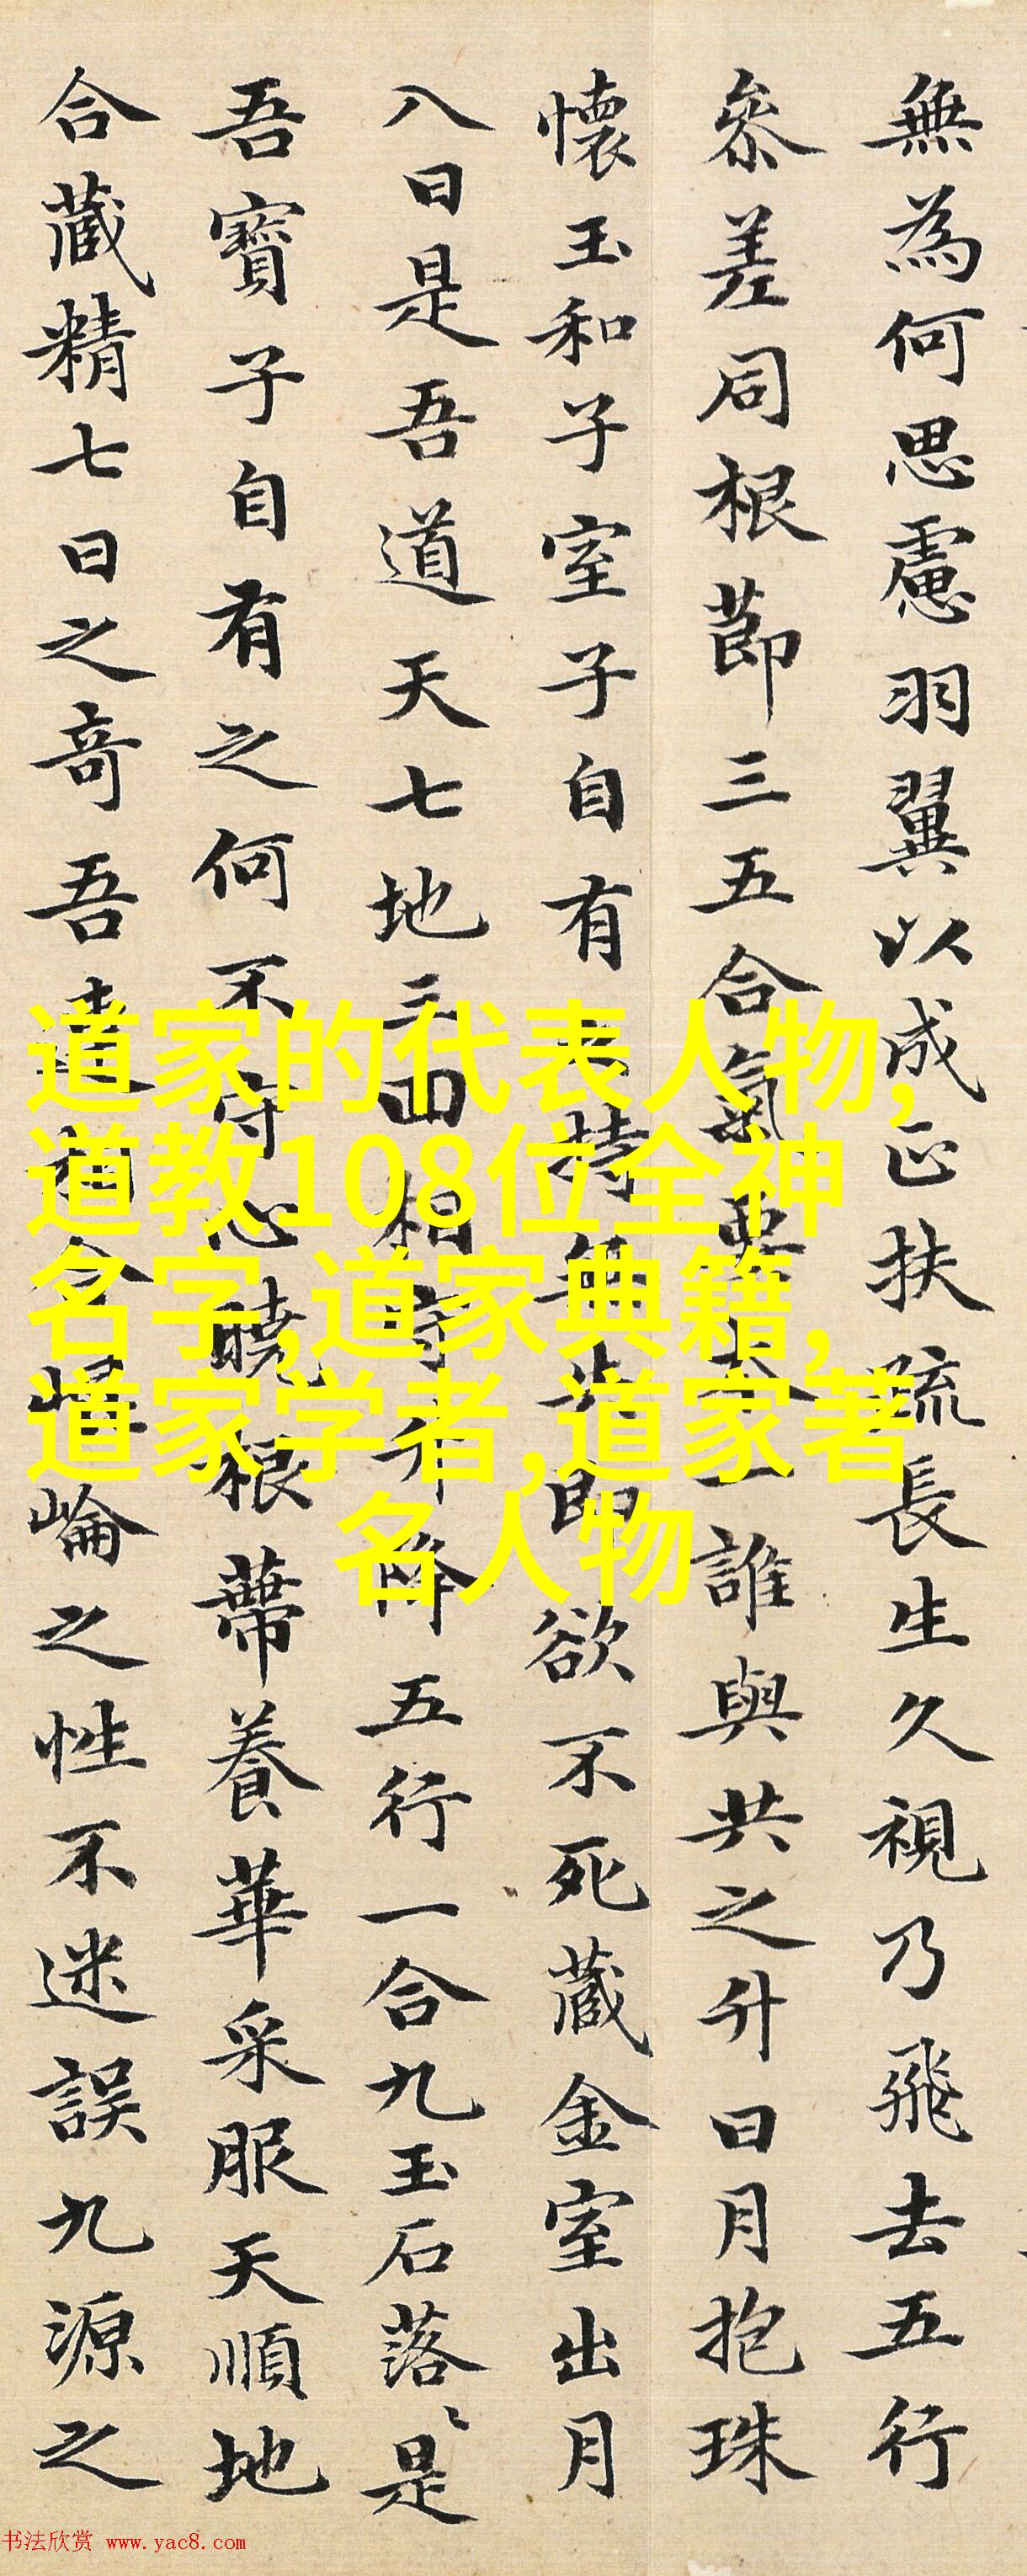 無為何思慮羽翼以成正扶疏長生久視乃飛去五行
參差同根節三五合氣要本一誰與共之升日月抱珠
懷玉和子室子自有之持無失即欲不死藏金室出月
入日是吾道天七地三回相守升降五行一合九玉石落〻是
吾寶子自有之何不守心曉根蔕養華采服天順地
合藏精七日之奇吾連相合崐崘之性不迷誤九源之
道家的代表人物,
道教108位全神
名字,道家典籍,
道家学者,道家著
名人物
书法欣赏 www.yac8.com